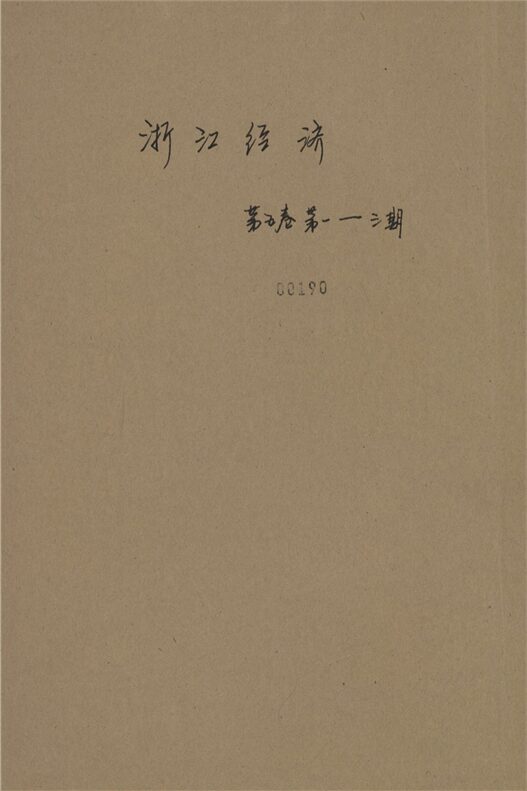 浙江经济
第五卷第一一三期
00190